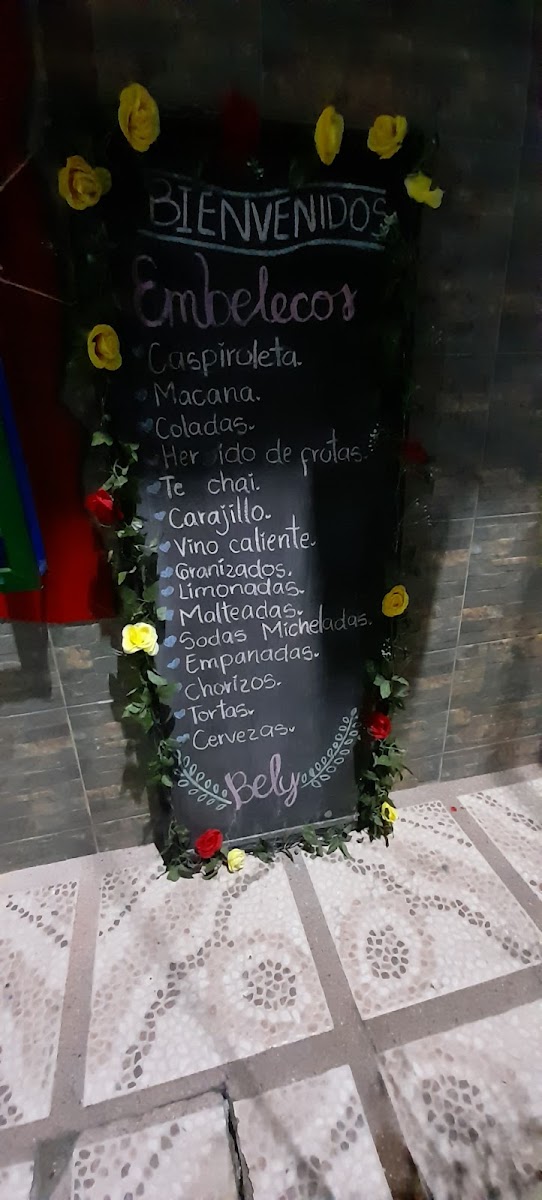 BIENVENIDOS
Embelecos
Caspiroleta.
Macana.
Coladas.
Her ido de frutas.
Te chai.
Carajillo.
Vino caliente.
Granizados.
Limonadas.
Malteadas.
Sodas Micheladas.
Empanadas.
Chorizos.
Tortas.
Cervezas.
Bely